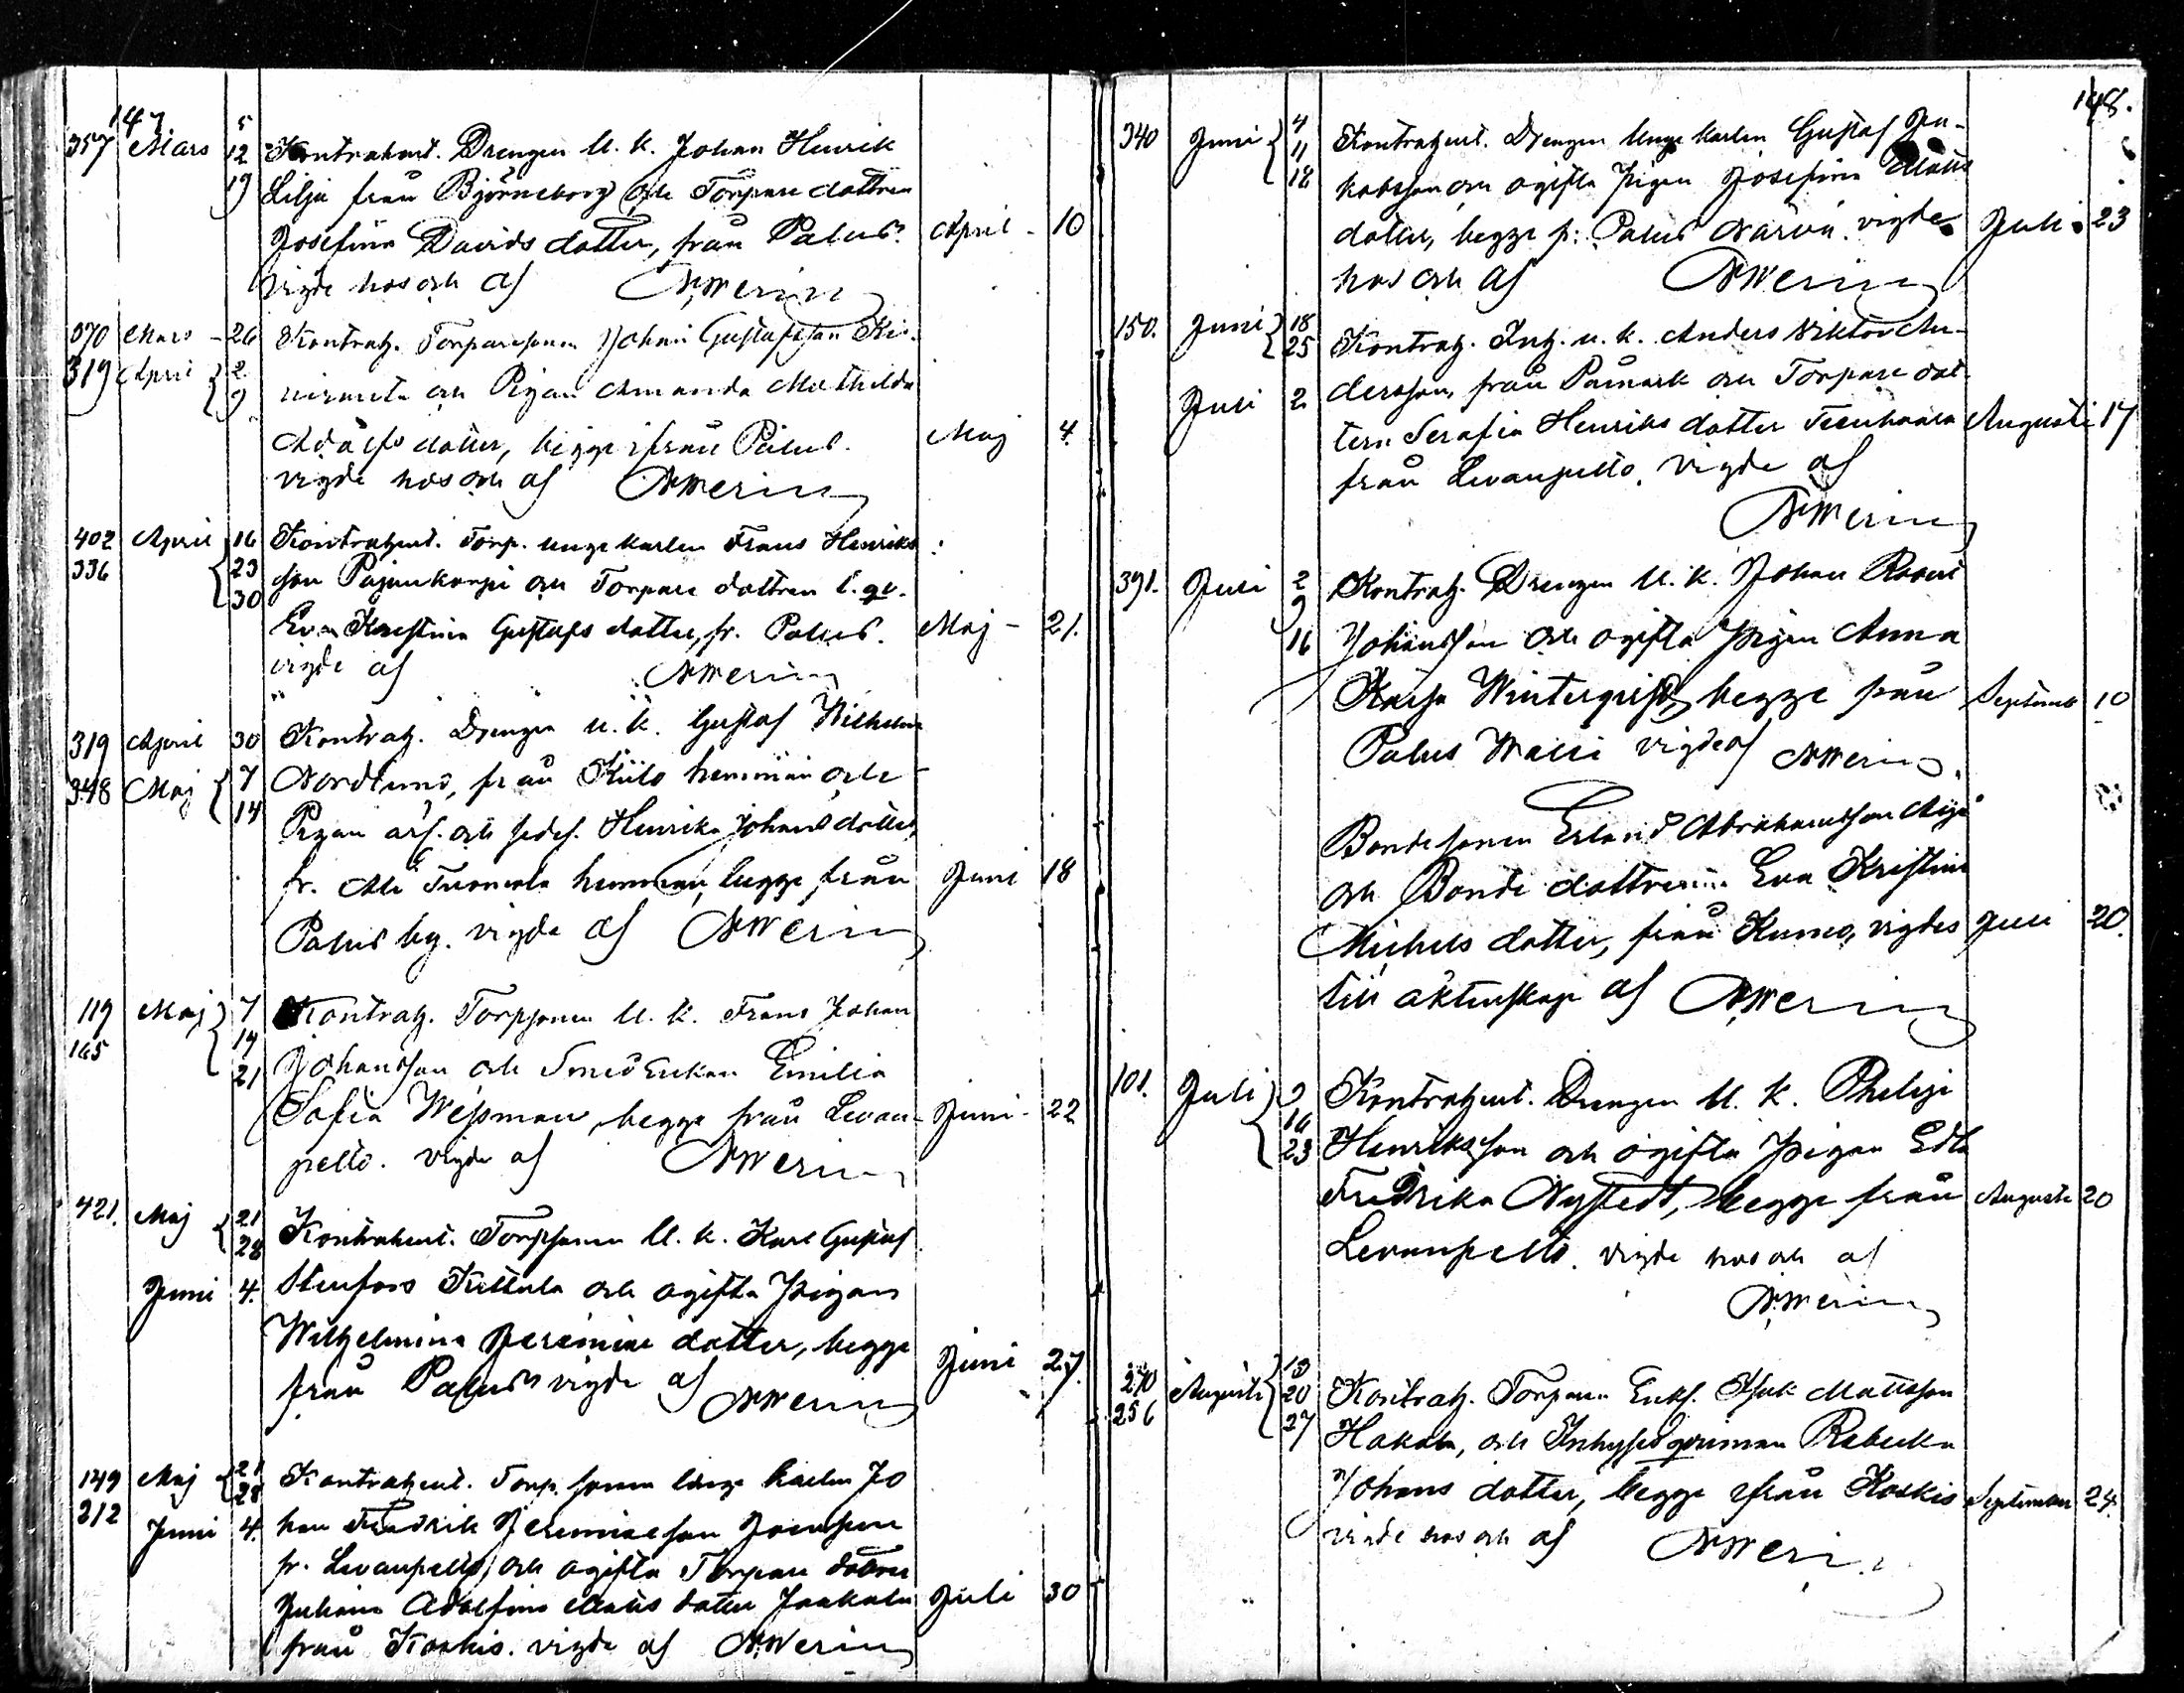 147
357 Mars 5 12 19 Kontrahent. Drengen U. K. Johan Henrik
Lilja från Björneborg och Torpare dottren
Josefina Davids dotter, från Palus. April - 10
vigde hos och af
370 Mars - 26 Kontrah. Torparesonen Johan Gustafsson
319 April 2 9 och Pigan Amanda Mathilda
Adolfs dotter, begge ifrån Palus. Maj 4.
vigde hos och af
402 336 April 16 23 30 Kontrahent. Torp. unge karlen Frans Henriks
son Pajunkorpi och Torpare dottren
Eva Kristina Gustafs dotter, fr. Palus. Maj - 21.
vigde af
319 April 30 Kontrah. Drengen u. k. Gustaf Wilhelm
348 Maj 7 14 Nordlund, från Kiilo hemman och
Pigan Henrika Johans dotter,
fr. Ali Tuomola hemman, begge från Juni 18
Palus by. vigde af
119 165 Maj 7 14 21 Kontrah. Torpsonen U. K. Frans Johan
Johansson och Smedenkan Emilia
Sofia Wessman, begge från Levan- Juni - 22
pelto. vigde af
421. Maj 21 28 Kontrahent. Torpsonen U. K. Karl Gustaf
Juni 4. Stenfors Kittula och ogifta Pigan
Wilhelmina Jeremiae dotter, begge
från Palus vigde af Juni 27.
149 212 Maj 21 28 Kontrahent. Torp. sonen Unge karlen Jo
Juni 4. han Fredrik Jeremiaeson
fr. Levanpelto, och ogifta Torpare dottren
Juliana Adolfina Matts dotter Jaakola Juli 30
från Koskis. vigde af
148.
340 Juni 4 11 18 Kontrahent. Drengen Unge karlen Gustaf Ja-
kobsson och ogifta Pigan Josefina Matts
dotter, begge fr: Palus Narvi. vigde Juli 23
hos och af
150. Juni 18 25 Kontrah. Inh. u. k. Anders Viktor An-
Juli 2 dersson, från Påmark och Torpare dot-
tern Serafia Henriks dotter Teenhaara Augusti 17
från Levanpelto. vigde af
391. Juli 2 9 16 Kontrah. Drengen U. K. Johan Robert
Johansson och ogifta Pigan Anna
Kaisa Winterqvist, begge från September 10
Palus Walli vigde af
Bonde sonen Erland Abrahamsson
och Bonde dottren Eva Kristina
Michels dotter, från Kumo, vigdes Juli 20.
till äktenskap af
101. Juli 9 16 23 Kontrahent. Drengen U. K. Philip
Henriksson och ogifta Pigan Edla
Fredrika Nystedt, begge från Augusti 20
Levanpelto. vigde hos och af
270 256 Augusti 13 20 27 Kontrah. Torparen Enkl. Isak Mattsson
Hakala, och Inhyses qvinnan Rebecka
Johans dotter, begge från Koskis September 24.
vigde hos och af